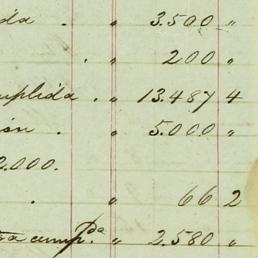 da . " 3.500 "
. " 200 "
mplida . " 13.487 4
ión . " 5.000 "
2.000.
. " 66 2
cump.da " 2.580 "